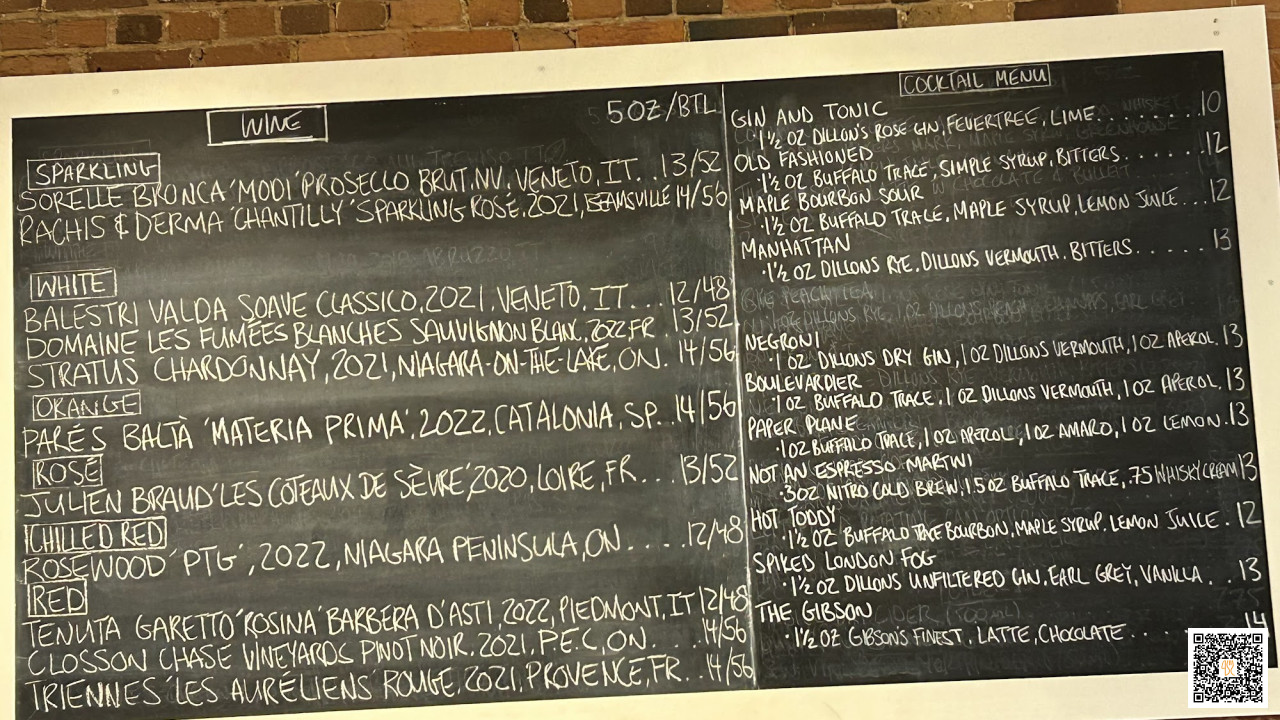 WINE
5OZ/BTL
SPARKLING
SORELLE BRONCA 'MODI' PROSECCO BRUT. NV. VENETO, IT. . 13/52
RACHIS & DERMA 'CHANTILLY' SPARKLING ROSÉ, 2021, BEAMSVILLE 14/56
WHITE
BALESTRI VALDA SOAVE CLASSICO, 2021, VENETO, IT. . . 12/48
DOMAINE LES FUMÉES BLANCHES SAUVIGNON BLANC, 2022, FR 13/52
STRATUS CHARDONNAY, 2021, NIAGARA-ON-THE-LAKE, ON. 14/56
ORANGE
PARÉS BALTÀ 'MATERIA PRIMA', 2022, CATALONIA, SP. . 14/56
ROSÉ
JULIEN BRAUD 'LES COTEAUX DE SÈVRE' 2020, LOIRE, FR . . . 13/52
CHILLED RED
ROSEWOOD 'PTG', 2022, NIAGARA PENINSULA, ON . . . . 12/48
RED
TENUTA GARETTO 'ROSINA' BARBERA D'ASTI, 2022, PIEDMONT, IT 12/48
CLOSSON CHASE VINEYARDS PINOT NOIR. 2021, P.E.C, ON. . . . 14/56
TRIENNES 'LES AURÉLIENS' ROUGE, 2021, PROVENCE, FR. . 14/56
COCKTAIL MENU
GIN AND TONIC
· 1 1/2 OZ DILLON'S ROSE GIN, FEVERTREE, LIME. . . . . . . . 10
OLD FASHIONED
· 1 1/2 OZ BUFFALO TRACE, SIMPLE SYRUP, BITTERS. . . . . . 12
MAPLE BOURBON SOUR
· 1 1/2 OZ BUFFALO TRACE, MAPLE SYRUP, LEMON JUICE. . . 12
MANHATTAN
· 1 1/2 OZ DILLONS RYE, DILLONS VERMOUTH. BITTERS. . . . . 13
NEGRONI
· 1 OZ DILLONS DRY GIN, 1 OZ DILLONS VERMOUTH, 1 OZ APEROL. 13
BOULEVARDIER
· 1 OZ BUFFALO TRACE. 1 OZ DILLONS VERMOUTH, 1 OZ APEROL. 13
PAPER PLANE
· 1 OZ BUFFALO TRACE, 1 OZ APEROL, 1 OZ AMARO, 1 OZ LEMON. 13
NOT AN ESPRESSO MARTINI
· 3OZ NITRO COLD BREW, 1.5 OZ BUFFALO TRACE, .75 WHISKY CREAM 13
HOT TODDY
· 1 1/2 OZ BUFFALO TRACE BOURBON, MAPLE SYRUP, LEMON JUICE . 12
SPIKED LONDON FOG
· 1 1/2 OZ DILLONS UNFILTERED GIN, EARL GREY, VANILLA . . 13
THE GIBSON
· 1 1/2 OZ GIBSON'S FINEST, LATTE, CHOCOLATE . . . 14